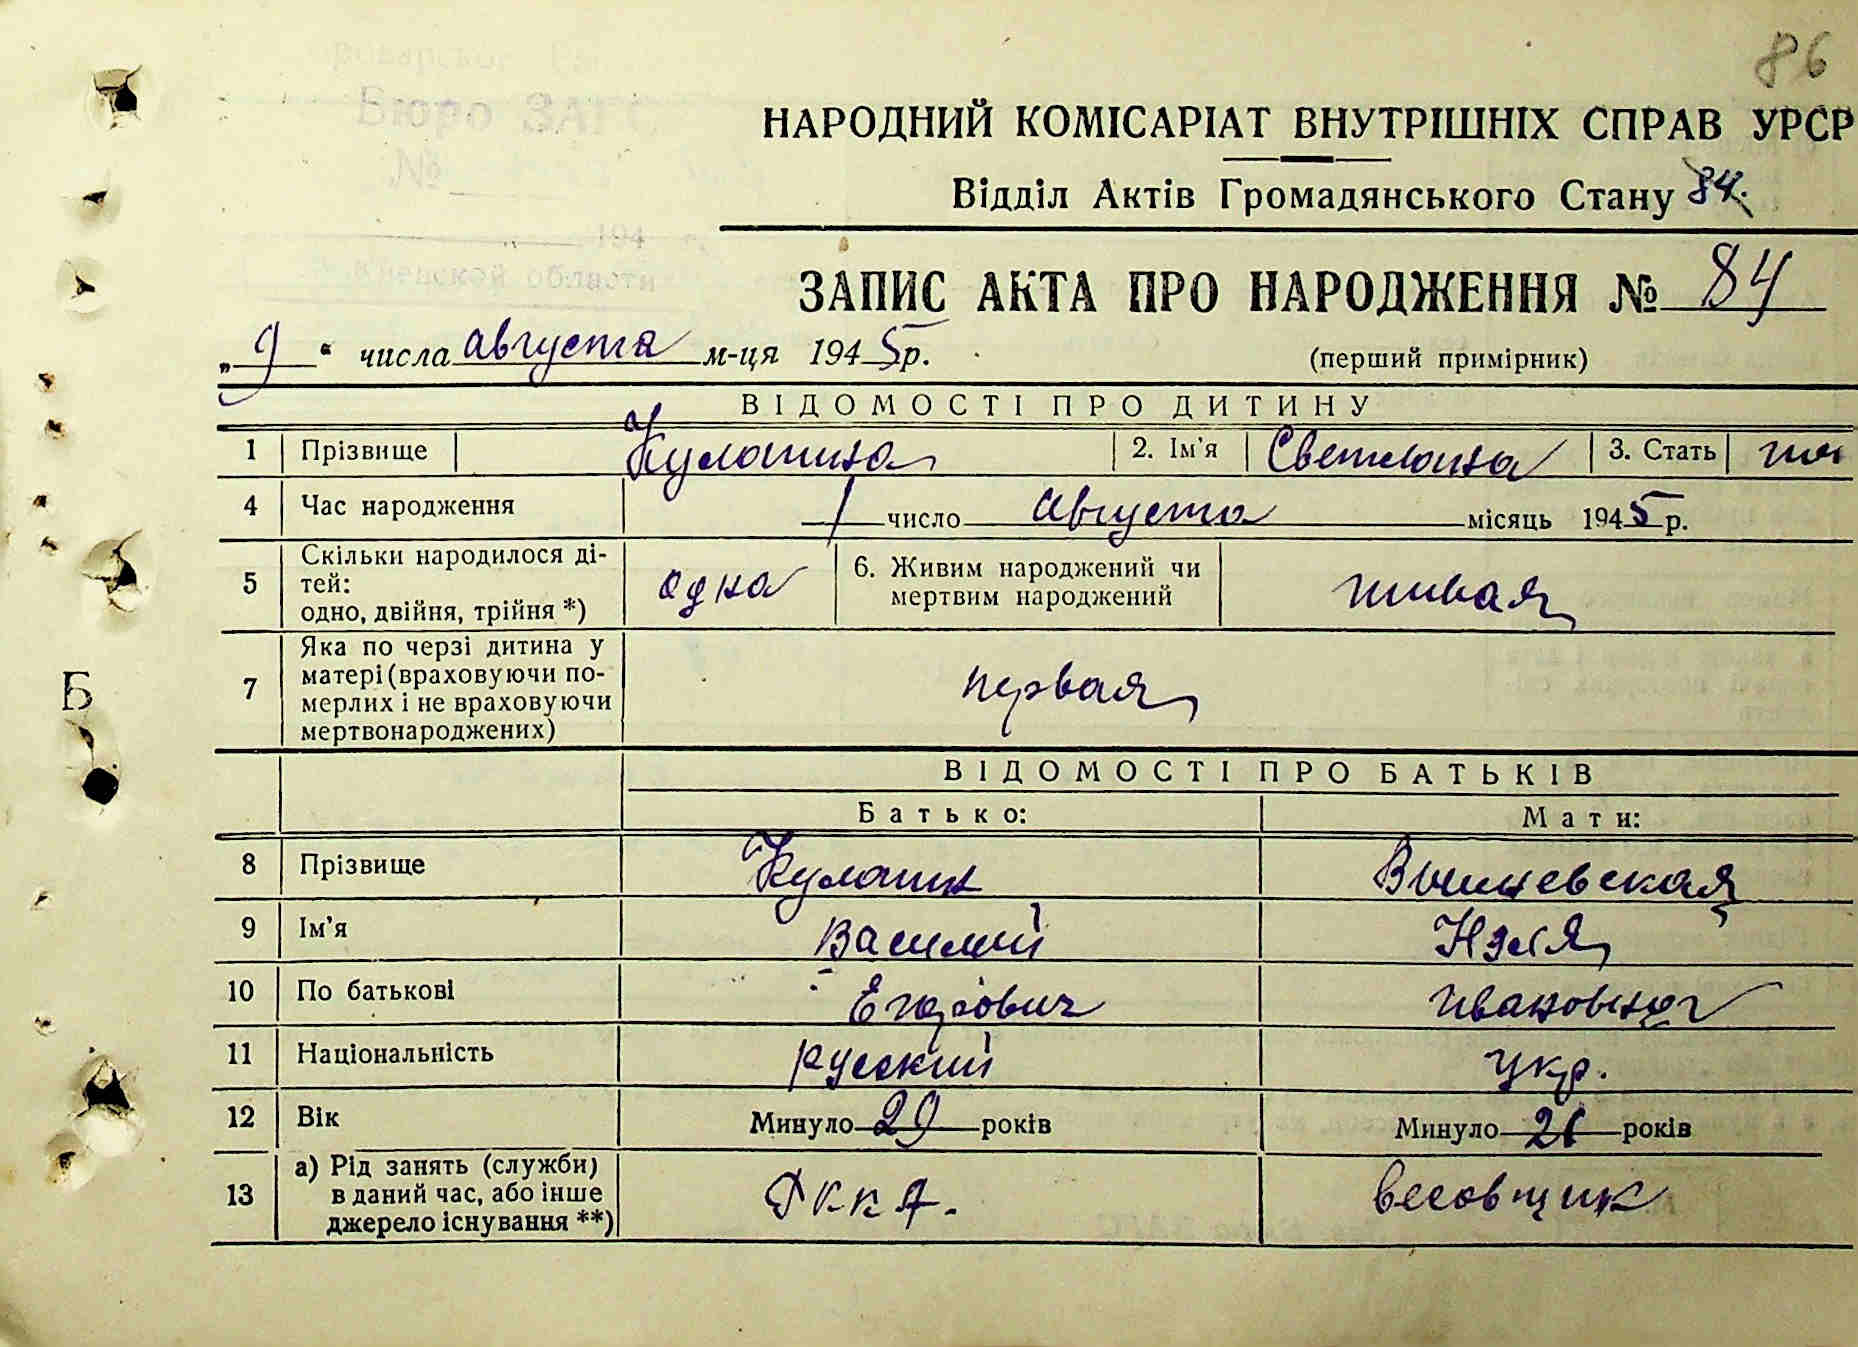 86
НАРОДНИЙ КОМІСАРІАТ ВНУТРІШНІХ СПРАВ УРСР
Відділ Актів Громадянського Стану 84.
ЗАПИС АКТА ПРО НАРОДЖЕННЯ № 84
„ 9 “ числа августа м-ця 1945 р.
(перший примірник)
ВІДОМОСТІ ПРО ДИТИНУ
1 Прізвище Кулагина 2. Ім'я Светлана 3. Стать жен
4 Час народження 1 число Августа місяць 1945 р.
5 Скільки народилося ді-
тей:
одно, двійня, трійня *) одна
6. Живим народжений чи
мертвим народжений живая
7 Яка по черзі дитина у
матері (враховуючи по-
мерлих і не враховуючи
мертвонароджених) первая
Б
ВІДОМОСТІ ПРО БАТЬКІВ
Батько: Мати:
8 Прізвище Кулагин Вышневская
9 Ім'я Василий Нэля
10 По батькові Егорович Ивановна
11 Національність русский укр.
12 Вік Минуло 29 років Минуло 21 років
13 а) Рід занять (служби)
в даний час, або інше
джерело існування **) РККА. весовщик
Бюро ЗАГС
№
194
Киевской области